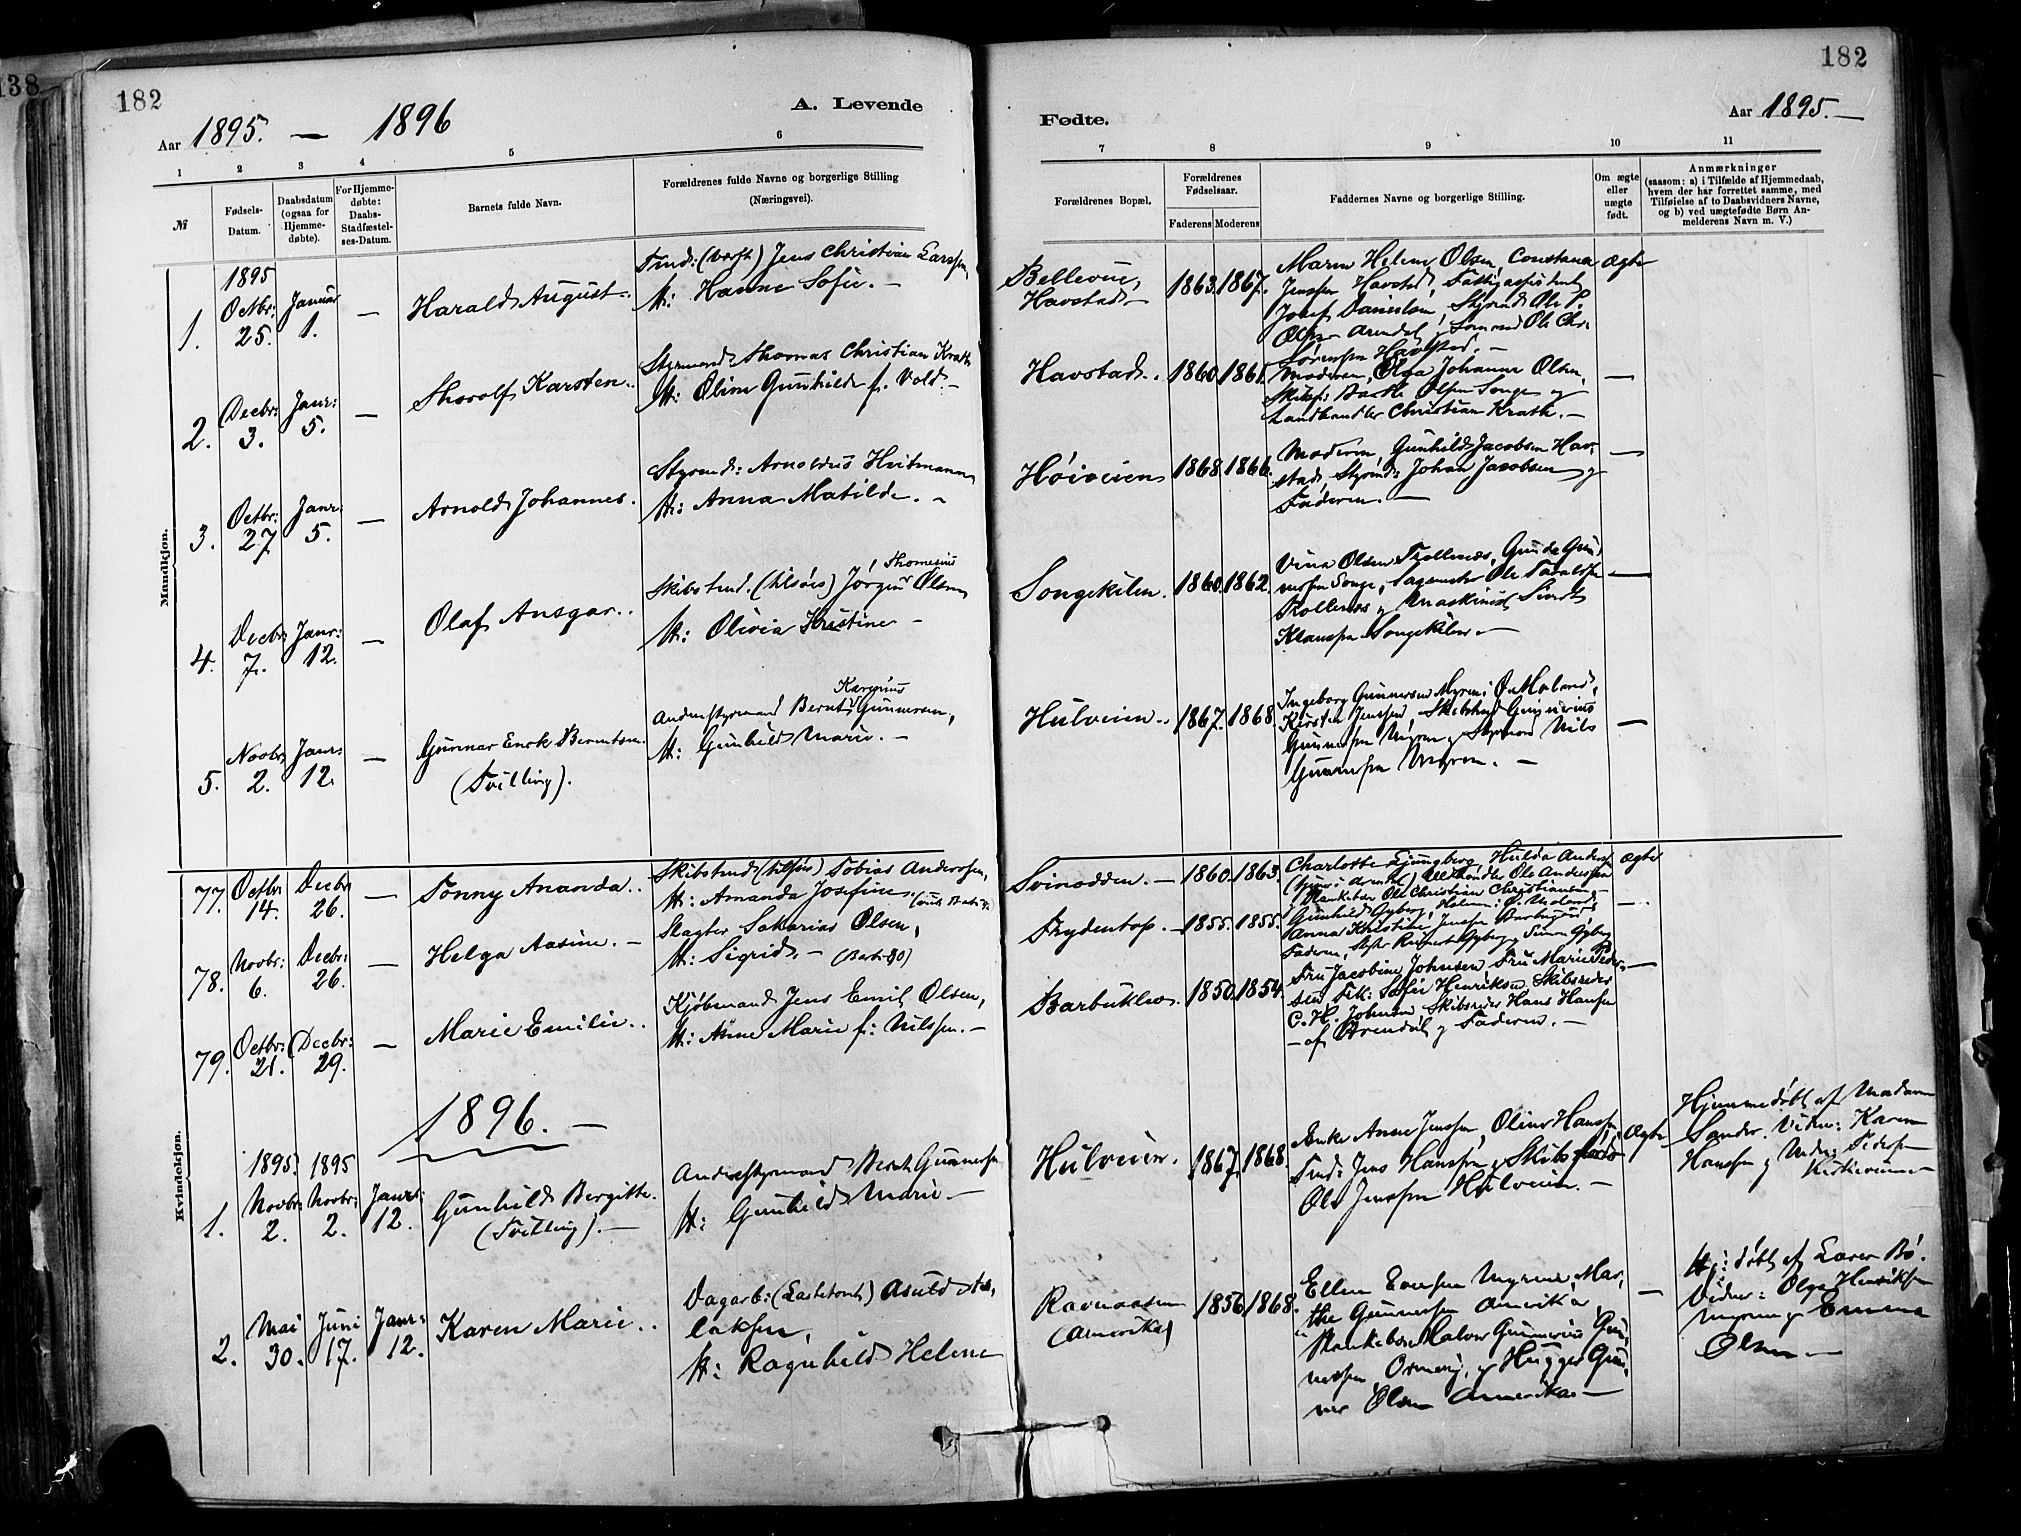 138
182
182
A. Levende
Fødte.
Aar 1895. — 1896
Aar 1895. —
1
2
3
4
5
6
7
8
9
10
11
№
Fødsels-
Datum.
Daabsdatum
(ogsaa for
Hjemme-
døbte).
For Hjemme-
døbte:
Daabs-
Stadfæstel-
ses-Datum.
Barnets fulde Navn.
Forældrenes fulde Navne og borgerlige Stilling
(Næringsvei).
Forældrenes Bopæl.
Forældrenes
Fødselsaar.
Faderens
Moderens
Faddernes Navne og borgerlige Stilling.
Om ægte
eller
uægte
født.
Anmærkninger
(saasom: a) i Tilfælde af Hjemmedaab,
hvem der har forrettet samme, med
Tilføielse af to Daabsvidners Navne,
og b) ved uægtefødte Børn An-
melderens Navn m. V.)
Mandkjøn.
1.
1895
Octbr:
25.
Januar
1.
—
Harald August.
Jens Christian Larssen,
H: Hanne Sofie. —
Bellevue,
Havstad
1863.
1867.
Maren Helene Olsen, Constance
Jenssen Havsted, Fattigassistent
Josef Danielsen, Styrmd Ole P.
Olsen Arendal, Ole Chr.
Sørensen Havsted. —
ægte
2.
Decbr:
3.
Janr:
5.
—
Thorolf Karsten.
Styrmand Thomas Christian Krath
H: Oline Gunhilde f. Vold. —
Havstad.
1860
1861.
Moderen, Olga Johanne Olsen,
Olsen Songe og
Landhandler Christian Krath. —
—
3.
Octbr:
27
Janr:
5.
—
Arnold Johannes.
Styrmd: Arnoldus Hvitmann
H: Anna Matilde. —
Høiveien
1868
1866.
Moderen, Gunhild Jacobsen Hav-
stad, Styrmd: Johan Jacobsen og
Faderen. —
—
4.
Decbr:
7.
Janr:
12.
—
Olaf Ansgar.
Thomesius
Skibstmd. (tilsøes) Jørgen Olsen
H: Olivia Kristine —
Songekilen.
1860
1862.
Vina Olsen Trollenes, Gunda Gun-
nersen Songe, Ole
Trollenes og Maskinist
Klausen Songekilen. —
—
5.
Novbr:
2.
Janr:
12.
—
Gunnar Enok Berntsen
(Tvilling).
Andenstyrmand Bernt Gunnersen,
H: Gunhild Marie. —
Hulveien.
1867.
1868.
Ingeborg Gunnersen Myrene Ø. Moland,
Kirsten Jenssen, Skibstmd Gunerius
Gunnersen Myren og Styrmand Nils
Gunnersen Myren. —
—
Kvindekjøn.
77.
Octbr
14.
Decbr
26.
—
Tonny Ananda.
Skibstmd (tilsøes) Tobias Anderssen,
H: Amanda Josefine
Svinodden. —
1860.
1863.
Charlotte Ljungberg, Hulda Anders
Ole Anderssen
Ole Christian Christiansen
ægte
78.
Novbr:
6.
Decbr:
26.
—
Helga Aasine. —
Slagter Sakarias Olsen,
H: Sigrid. —
Frydentop. —
1855.
1855.
Gunhild Gyberg, Holmen Ø. Moland,
Anna Kristine Jenssen
Faderen, Gyberg
—
79.
Octbr:
21.
Decbr:
29.
—
Marie Emilie.
Kjøbmand Jens Emil Olsen,
H: Anne Marie f: Nilssen. —
Barbuklev
1850
1854.
Fru Jacobine Johnsen, Fru Marie Peder-
sen Frk: Sofie Henriksen, Skibsreder
C. H. Johnsen Skibsreder Hans Hansen
— af Arendal og Faderen. —
—
1896. —
1.
1895.
Novbr:
2.
1895
Novbr:
2.
Janr:
12.
Gunhild Bergitte.
(Tvilling). —
Andenstyrmand Bernt Gunnersen
H: Gunhild Marie —
Hulveien.
1867
1868.
Enke Anne Jenssen, Oline Hanssen,
Jens Hanssen og
Ole Jenssen Hulveien. —
ægte
Hjemmedøbt af Madam
Sander. Vidner: Karen
Hanssen og Pedersen
Kirkeveien
2.
Mai
30.
Juni
17.
Janr:
12.
Karen Marie.
Dagarb: Asuld As-
laksen,
H: Ragnhild Helene
Ravnaasen
(Amerika)
1856
1868.
Ellen Evensen Myrene, Mar-
the Gunnersen Amerika,
Gunnerius Gun-
nersen og Hugger Gun-
ner Olsen Amerika —
—
Hj: døbt af Bø.
Vidner: Olga Henriksen
Myren og Emma
Olsen —